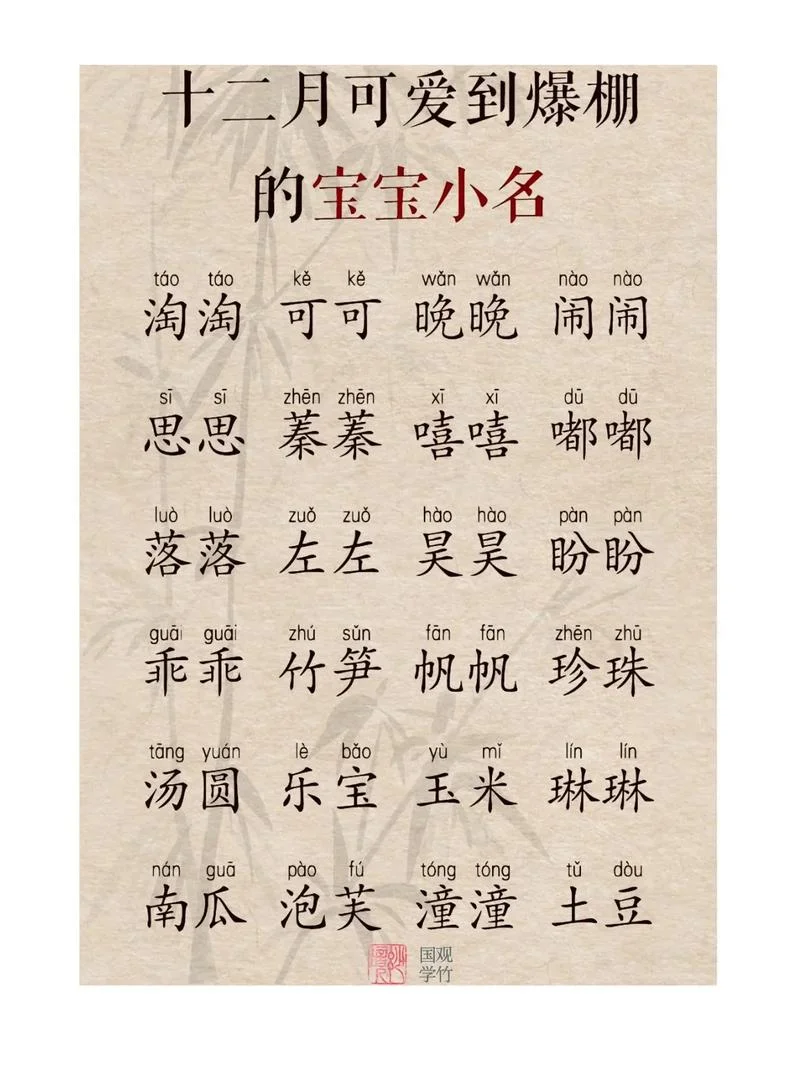 十二月可爱到爆棚
的宝宝小名
táo táo kě kě wǎn wǎn nào nào
淘淘 可可 晚晚 闹闹
sī sī zhēn zhēn xī xī dū dū
思思 蓁蓁 嘻嘻 嘟嘟
luò luò zuǒ zuǒ hào hào pàn pàn
落落 左左 昊昊 盼盼
guāi guāi zhú sǔn fān fān zhēn zhū
乖乖 竹笋 帆帆 珍珠
tāng yuán lè bǎo yù mǐ lín lín
汤圆 乐宝 玉米 琳琳
nán guā pào fú tóng tóng tǔ dòu
南瓜 泡芙 潼潼 土豆
观竹
国学